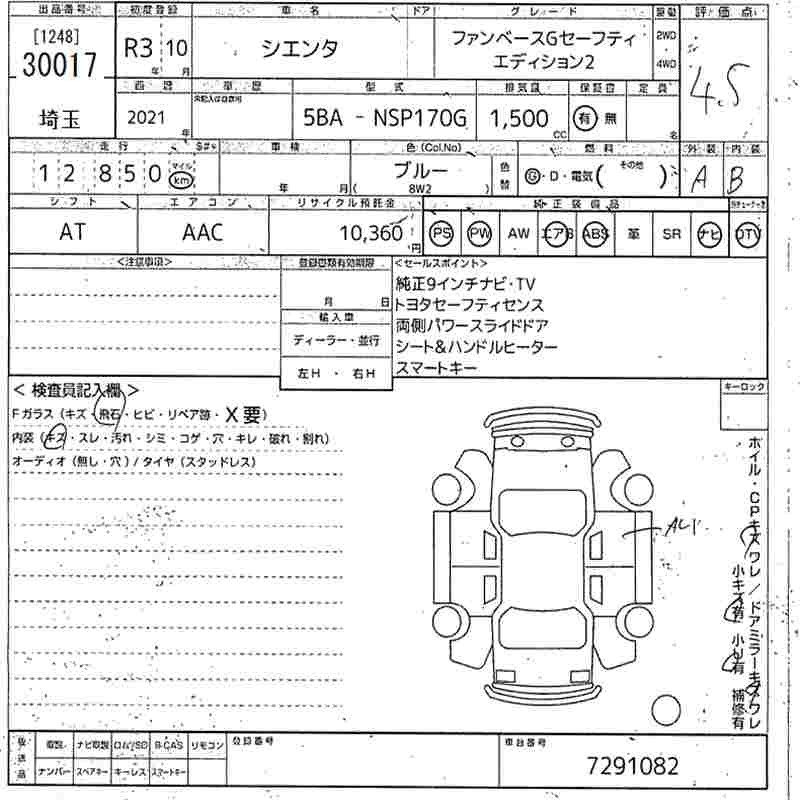 出品番号 初度登録 車名 ドア グレード 駆動 評価点
[1248]
30017
埼玉
R3 10
年 月
シエンタ
ファンベースGセーフティ
エディション2
2WD
4WD
4.5
西暦 車歴 型式 排気量 保証書 定員
未記入は自家用
2021 年
5BA - NSP170G
1,500 CC
有 無
名
走行 S#* 車検 色(Col.No) 燃料 外装 内装
12850
マイル
km
年 月
ブルー
( 8W2 )
色替
G・D・電気( その他 )
A B
シフト エアコン リサイクル預託金 純正装備品
AT AAC 10,360 円
PS PW AW エアB ABS 革 SR ナビ DTV
<注意事項> 登録書類有効期限 <セールスポイント>
月 日
輸入車
ディーラー・並行
左H ・ 右H
純正9インチナビ・TV
トヨタセーフティセンス
両側パワースライドドア
シート&ハンドルヒーター
スマートキー
キーロック
< 検査員記入欄 >
Fガラス (キズ・飛石・ヒビ・リペア跡・X要)
内装 (キズ・スレ・汚れ・シミ・コゲ・穴・キレ・破れ・剥れ)
オーディオ (無し・穴) / タイヤ (スタッドレス)
ホイル・CPキズワレ/ドアミラーキズワレ
小キズ有 小U有 補修有
後送品
取説 ナビ取説 ロム/SD B-CAS リモコン
ナンバー スペアキー キーレス スマートキー
登録番号
車台番号
7291082